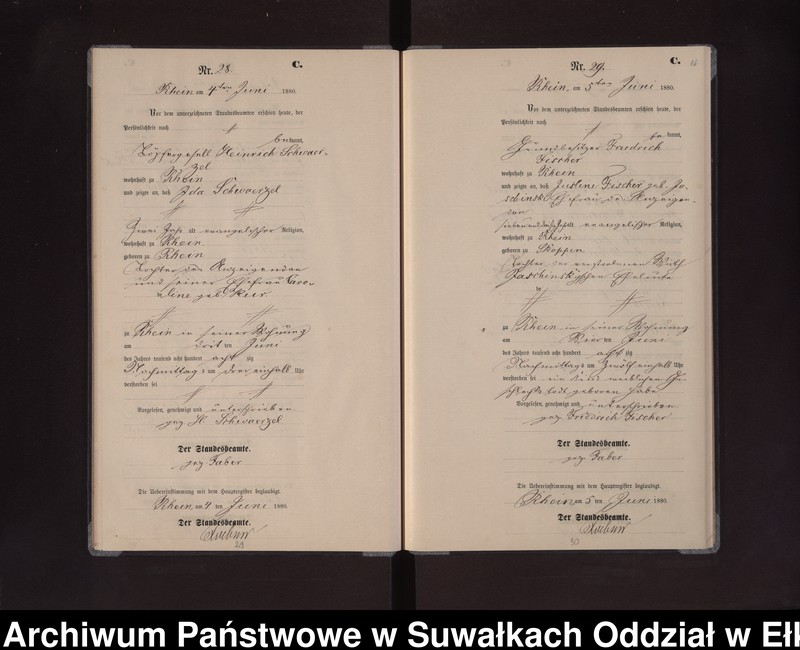 Nr. 28. C.
Rhein, am 4ten Juni 1880.
Vor dem unterzeichneten Standesbeamten erschien heute, der
Persönlichkeit nach
bekannt,
Heinrich Schwaer-
zel
wohnhaft zu Rhein
und zeigte an, daß Ida Schwaerzel
zwei Jahr alt evangelischer Religion,
wohnhaft zu Rhein
geboren zu Rhein
Tochter des Anzeigenden
und seiner Ehefrau Caro-
line geb.
zu Rhein in seiner Wohnung
am ten Juni
des Jahres tausend acht hundert acht zig
Nachmittags um drei einhalb Uhr
verstorben sei
Vorgelesen, genehmigt und unterschrieben
gez. H. Schwaerzel
Der Standesbeamte.
gez. Faber
Die Uebereinstimmung mit dem Hauptregister beglaubigt.
Rhein, am 4 ten Juni 1880.
Der Standesbeamte.
29
Nr. 29. C.
Rhein, am 5ten Juni 1880.
Vor dem unterzeichneten Standesbeamten erschien heute, der
Persönlichkeit nach
bekannt,
Friedrich
Fischer
wohnhaft zu Rhein
und zeigte an, daß Justine Fischer geb. Ja-
schinski Ehefrau des Anzeigen-
den
evangelischer Religion,
wohnhaft zu Rhein
geboren zu Skoppen
Tochter der verstorbenen
Jaschinskischen Eheleute
zu Rhein in seiner Wohnung
am vier ten Juni
des Jahres tausend acht hundert acht zig
Nachmittags um zwölf einhalb Uhr
verstorben sei ein Kind weiblichen Ge-
schlechts todt geboren habe
Vorgelesen, genehmigt und unterschrieben
gez. Friedrich Fischer
Der Standesbeamte.
gez. Faber
Die Uebereinstimmung mit dem Hauptregister beglaubigt.
Rhein, am 5 ten Juni 1880.
Der Standesbeamte.
30
Archiwum Państwowe w Suwałkach Oddział w Ełk